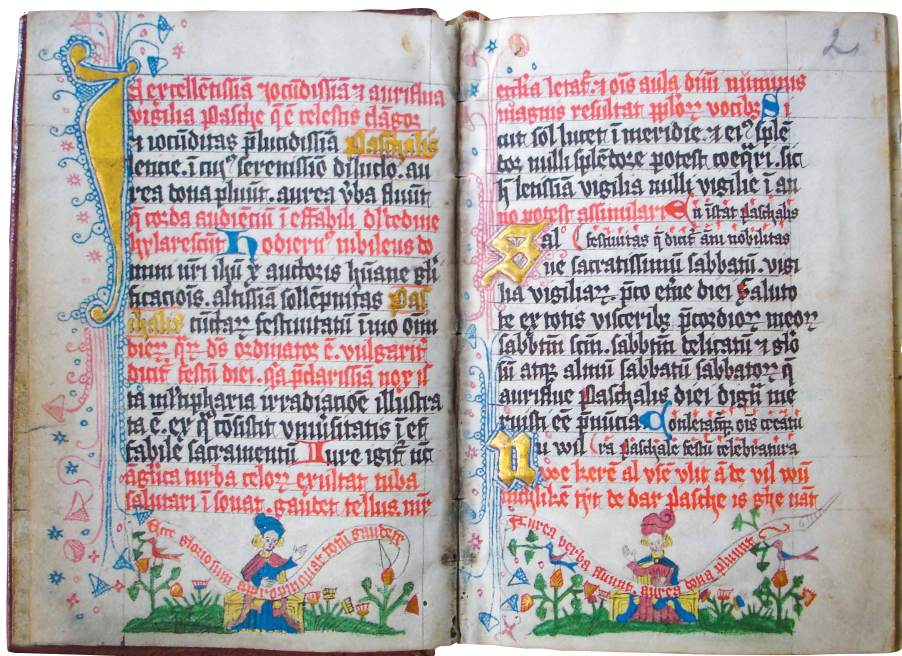 Iᷓ excellentissiā ⁊ iocūdissiā ⁊ auriflua
vigilia pasche q̄ ē celestis clāgor
⁊ iocūditas p̄lucidissiā Paschalis
lencie. ī cuiꝰ serenissiō diluclo. au
rea dona pluūt. aurea v̄ba fluūt
q̄ corda audienciū ī effabili dl̄cedine
hylarescūt Hodiernꝰ iubileus do
mini nr̄i ih̄u x̄ auctoris hūane gl̄i
ficaciōis. altissiā sollēpnitas pas
chalis cūctaꝝ festiuitatū īmo om̄i
dieꝝ q̄ꝝ dn̄s ordinator ē. vulgarit̄
dicit̄ festū diei. S̄a p̄clarissiā nox is
ta irradiatōe illustra
ta ē. ex q̄ cōsistit vniūsitatis ī ef
fabile sacramentū Iure igit̄ nc̄
āglica turba celoꝝ exultat tuba
salutari ī sonat. gaudet tellus
Ecce gloriosum totū gaudete
ecclīa letat̄. ⁊ oīs aula diuī numinis
magnis resultat pp̄loꝝ vocibꝫ Si
cut sol lucet ī meridie ⁊ eiꝰ splē
dor nulli splēdore potest coeq̄ri. sic
h̄ letissiā vigilia nulli vigilie ī an
no potest assimulari En īstat paschalis
Sal festiuitas q̄ dicit̄ āni nobilitas
ue sacratissimū sabbatū. vigi
lia vigiliaꝝ. Saluto
te ex totis visceribꝫ p̄cordioꝝ meoꝝ
sabbm̄ scm̄. sabbm̄ delicatū ⁊ glō
sū atqꝫ almū sabbatū sabbatoꝝ q̄
auriflue Paschalis diei dignū me
ruisti eē p̄nūcia Cōsecrat̄ oīs creatu
Nu wil ra paschale festū celebratura
we kerē al vse vlit āde vil wū
nichlikē tijt de dar Pasche is ghe nāt
Aurea verba fluunt. aurea dona pluunt
2